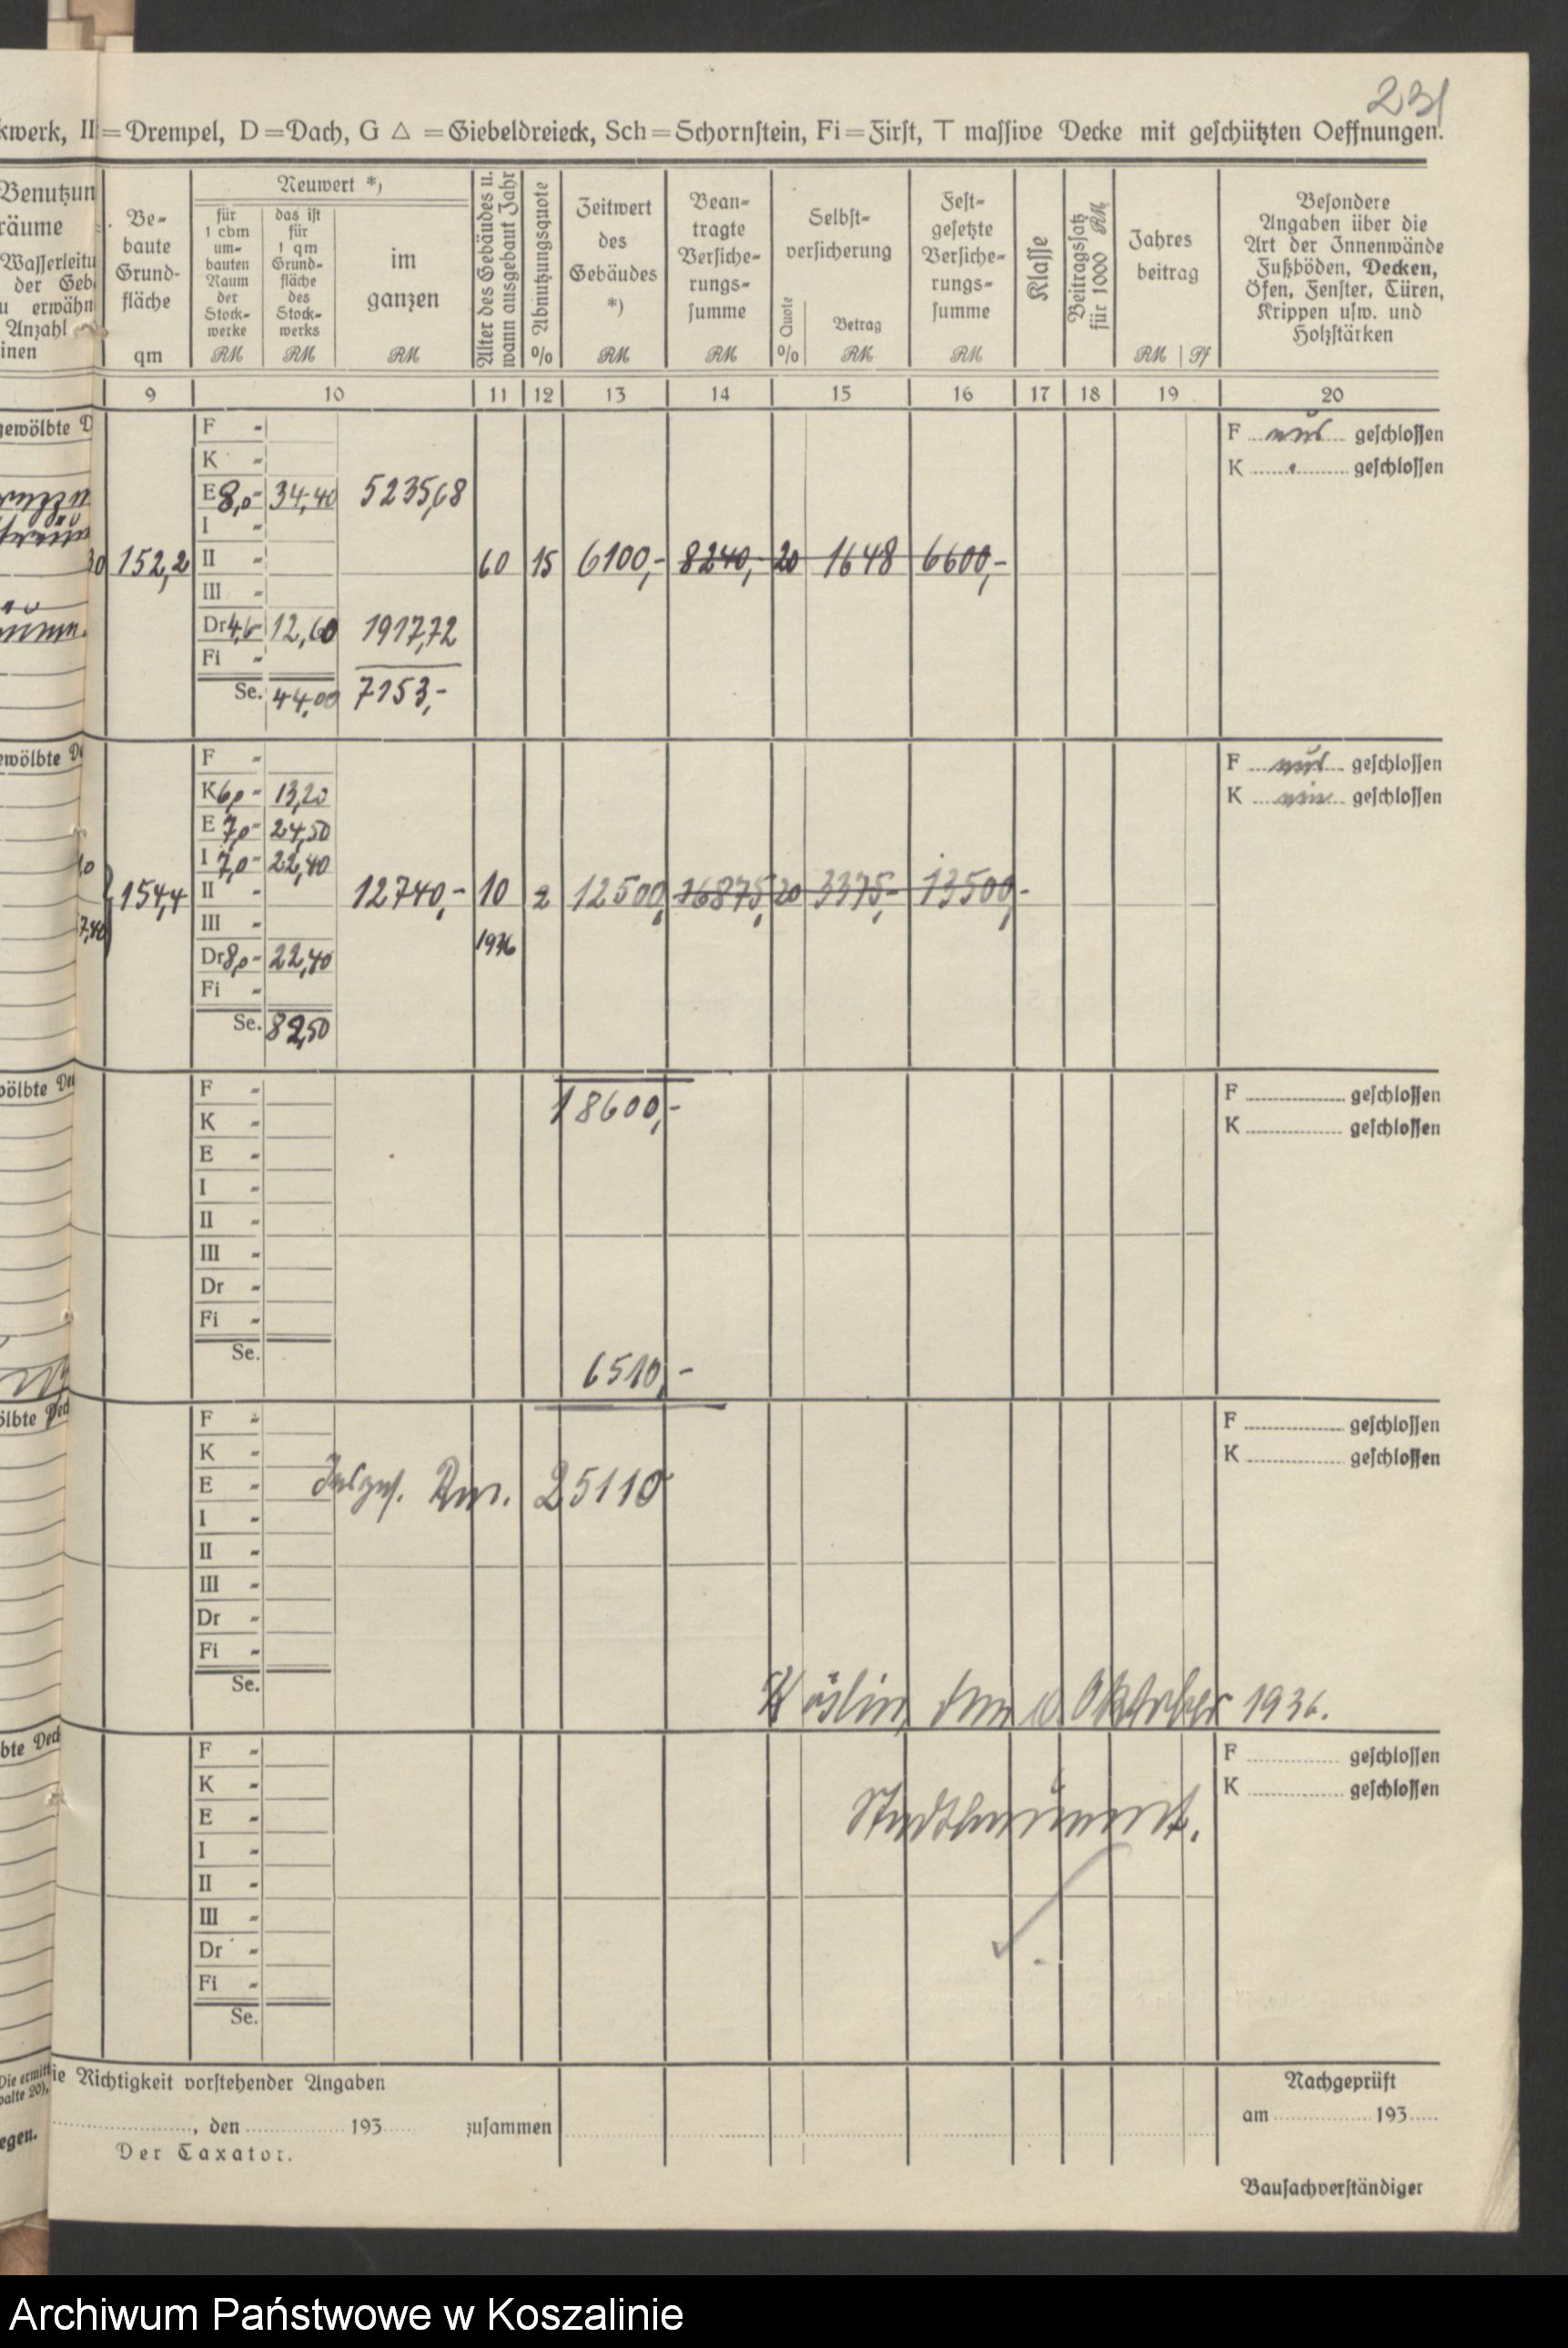 231
kwerk, II = Drempel, D = Dach, G △ = Giebeldreieck, Sch = Schornstein, Fi = First, T massive Decke mit geschützten Oeffnungen.
Benutzun
räume
Wasserleitu
der Geb
u erwähn
Anzahl
inen
Be-
baute
Grund-
fläche
qm
Neuwert *)
für
1 cbm
um-
bauten
Raum
der
Stock-
werke
RM
das ist
für
1 qm
Grund-
fläche
des
Stock-
werks
RM
im
ganzen
RM
Alter des Gebäudes u.
wann ausgebaut Jahr
Abnutzungsquote
%
Zeitwert
des
Gebäudes
*)
RM
Bean-
tragte
Versiche-
rungs-
summe
RM
Selbst-
versicherung
Quote
%
Betrag
RM
Fest-
gesetzte
Versiche-
rungs-
summe
RM
Klasse
Beitragssatz
für 1000 RM
Jahres
beitrag
RM | Pf
Besondere
Angaben über die
Art der Innenwände
Fußböden, Decken,
Öfen, Fenster, Türen,
Krippen usw. und
Holzstärken
9 10 11 12 13 14 15 16 17 18 19 20
gewölbte D
F -
K -
E 8,0- 34,40 5235,68
I -
152,2 II - 60 15 6100,- 8240,- 20 1648 6600,-
III -
Dr 12,60 1917,72
Fi -
Se. 44,00 7153,-
F geschlossen
K geschlossen
ewölbte De
F -
K 6,0- 13,20
E 7,0- 24,50
I 7,0- 22,40
154,4 II - 12740,- 10 2 12500, 16875, 20 3375,- 13500,-
III - 1936
Dr 8,0- 22,40
Fi -
Se. 82,50
F geschlossen
K geschlossen
wölbte Dec
18600,-
F -
K -
E -
I -
II -
III -
Dr -
Fi -
Se.
6510,-
F geschlossen
K geschlossen
ölbte Ded
F -
K -
E -
Insges. Rm. 25110
I -
II -
III -
Dr -
Fi -
Se.
F geschlossen
K geschlossen
Köslin, den 10. Oktober 1936.
bte Deck
F -
K -
E -
I -
II -
III -
Dr -
Fi -
Se.
F geschlossen
K geschlossen
Stadtbauamt.
Die ermitt
palte 20),
egen.
ie Richtigkeit vorstehender Angaben
, den 193 zusammen
Der Taxator.
Nachgeprüft
am 193
Bausachverständiger
Archiwum Państwowe w Koszalinie